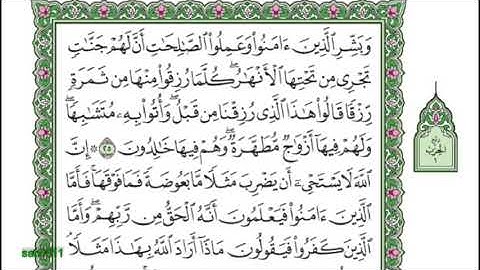 وَبَشِّرِ ٱلَّذِينَ ءَامَنُوا۟ وَعَمِلُوا۟ ٱلصَّٰلِحَٰتِ أَنَّ لَهُمْ جَنَّٰتٍ
تَجْرِى مِن تَحْتِهَا ٱلْأَنْهَٰرُ ۖ كُلَّمَا رُزِقُوا۟ مِنْهَا مِن ثَمَرَةٍ
رِّزْقًا ۙ قَالُوا۟ هَٰذَا ٱلَّذِى رُزِقْنَا مِن قَبْلُ ۖ وَأُتُوا۟ بِهِۦ مُتَشَٰبِهًا ۖ
وَلَهُمْ فِيهَآ أَزْوَٰجٌ مُّطَهَّرَةٌ ۖ وَهُمْ فِيهَا خَٰلِدُونَ ٢٥ ۞ إِنَّ
ٱللَّهَ لَا يَسْتَحْىِۦٓ أَن يَضْرِبَ مَثَلًا مَّا بَعُوضَةً فَمَا فَوْقَهَا ۚ فَأَمَّا
ٱلَّذِينَ ءَامَنُوا۟ فَيَعْلَمُونَ أَنَّهُ ٱلْحَقُّ مِن رَّبِّهِمْ ۖ وَأَمَّا
ٱلَّذِينَ كَفَرُوا۟ فَيَقُولُونَ مَاذَآ أَرَادَ ٱللَّهُ بِهَٰذَا مَثَلًا ۘ